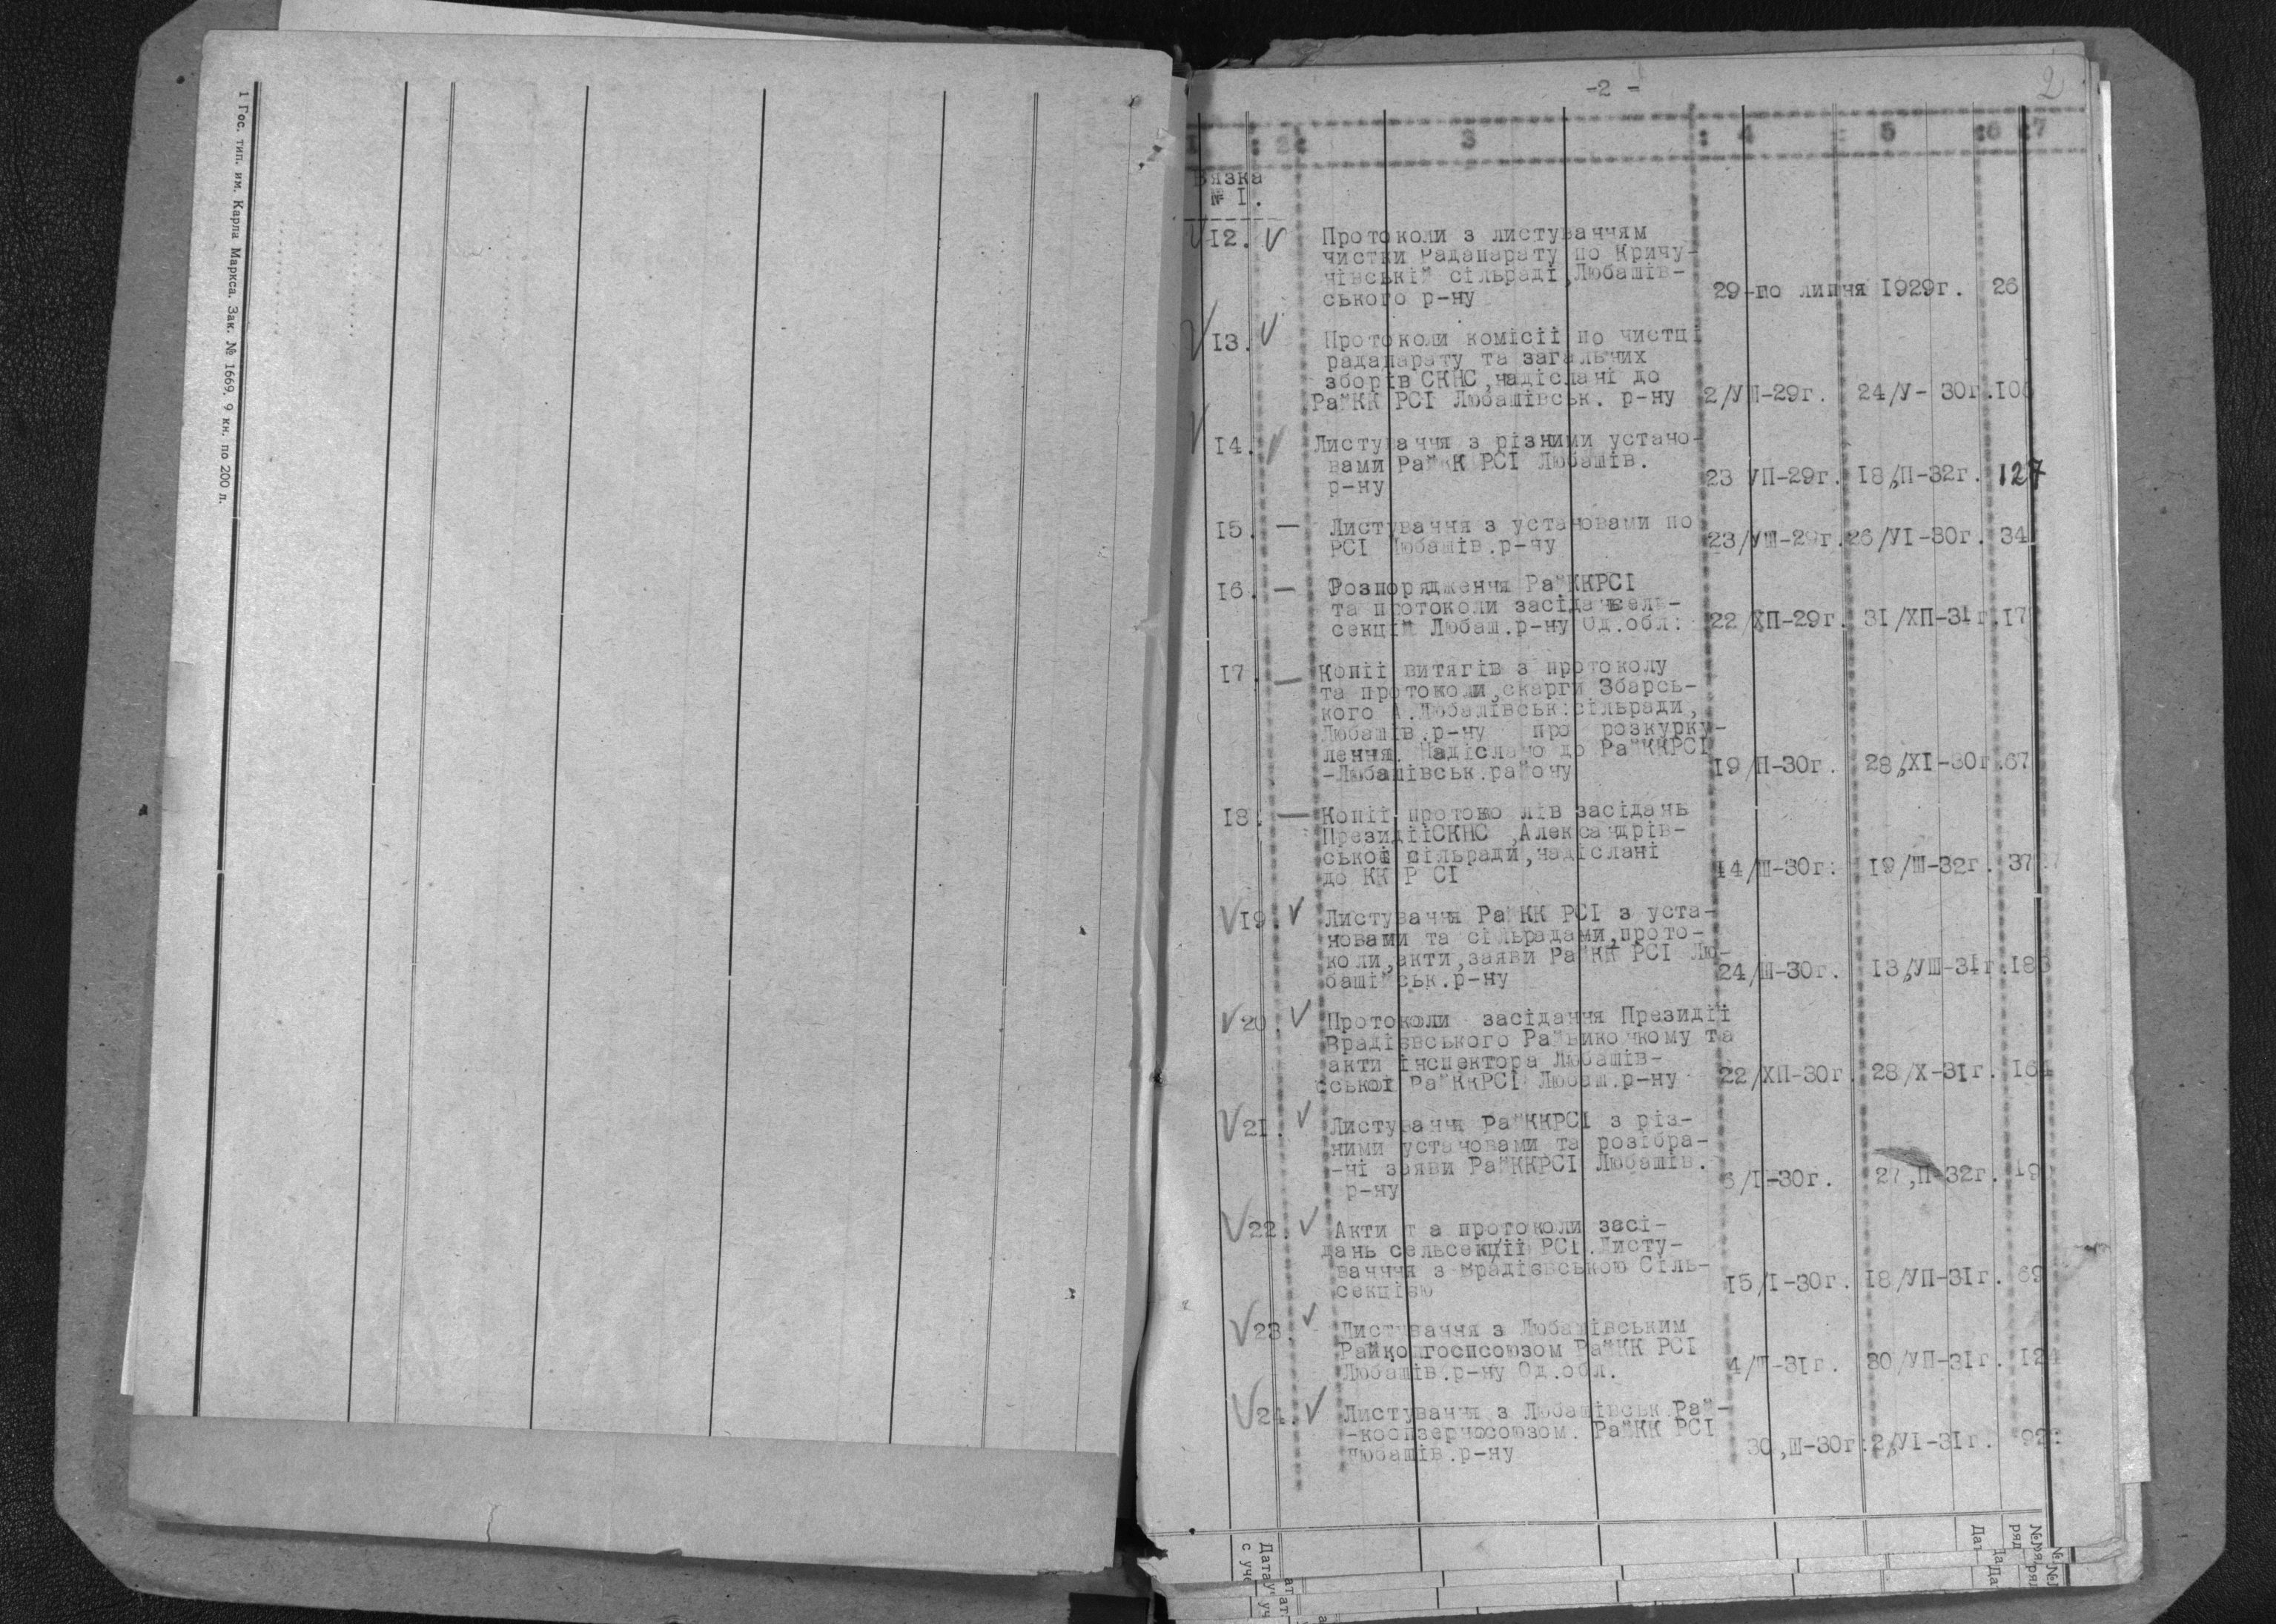 1 Гос. тип. им. Карла Маркса. Зак. № 1669. 9 кн. по 200 л.
-2 -
2
1 : 2 : 3 : 4 : 5 :6 :7
Вязка
№ I.
I2. Протоколи з листуванням
чистки Радапарату по Кричу-
нівській сільраді, Любашів-
ського р-ну 29-го липня 1929г. 26
I3. Протоколи комісії по чистці
радапарату та загальних
зборів СКНС, надіслані до
РайКК РСІ Любашівськ. р-ну 2/УШ-29г. 24/У- 30г.
I4. Листування з різними устано-
вами РайКК РСІ Любашів.
р-ну 23 УП-29г. I8,П-32г. 127
I5. — Листування з установами по
РСІ Любашів.р-ну 23/УШ-29г. 26/УІ-30г. 34
I6. — Розпорядження РайККРСІ
та протоколи засідань сель-
секцій Любаш.р-ну Од.обл: 22/ХП-29г. 3I/ХП-31г. 17
I7. — Копії витягів з протоколу
та протоколи, скарги Збарсь-
кого А.Любашівськ:сільради,
Любашів.р-ну про розкурку-
лення. Надіслано до РайККРСІ
-Любашівськ.району I9/П-30г. 28,ХІ-30г.67
I8. — Копії протоколів засідань
ПрезидіїСКНС, Александрів-
ської сільради, надіслані
до КК Р СІ 14/Ш-30г: I9/Ш-32г. 37
I9. Листування РайКК РСІ з уста-
новами та сільрадами, прото-
коли, акти, заяви РайКК РСІ Лю-
башівськ.р-ну 24/Ш-30г. I3,УШ-31г.
20. Протоколи засідання Президії
Врадієвського Райвиконкому та
акти інспектора Любашів-
ської РайККРСІ Любаш.р-ну 22/ХП-30г. 28/Х-3Iг.
2I. Листування РайККРСІ з різ-
ними установами та розібра-
-ні заяви РайККРСІ Любашів.
р-ну 6/І-30г. 27,П-32г.
22. Акти т а протоколи засі-
дань сельсекції РСІ.Листу-
вання з Врадієвською Сіль-
секцією I5/І-30г. I8/УП-3Iг. 69
23. Листування з Любашівським
Райколгоспсоюзом РайКК РСІ
Любашів.р-ну Од.обл. 30/УП-3Iг.
24. Листування з Любашівськ.Рай-
-коопзерносоюзом. РайКК РСІ
Любашів.р-ну 30,Ш-30г: 2,УІ-3Iг.